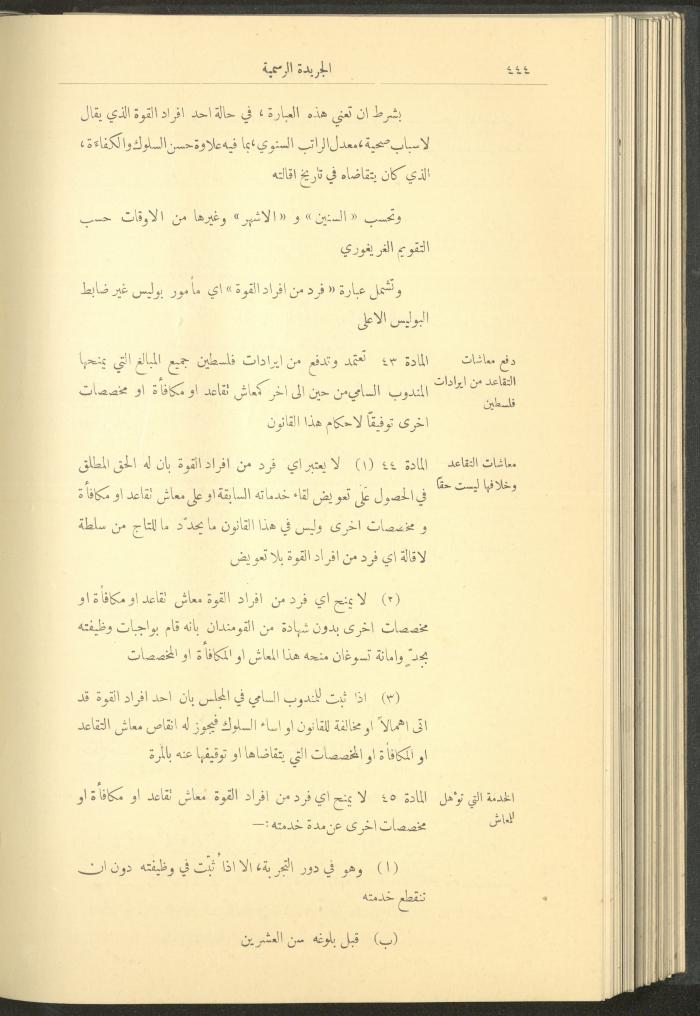 ٤٤٤
الجريدة الرسمية
بشرط ان تعني هذه العبارة، في حالة احد افراد القوة الذي يقال
لاسباب صحية، معدل الراتب السنوي، بما فيه علاوة حسن السلوك والكفاءة،
الذي كان يتقاضاه في تاريخ اقالته
وتحسب «السنين» و «الاشهر» وغيرها من الاوقات حسب
التقويم الغريغوري
وتشمل عبارة «فرد من افراد القوة» اي مأمور بوليس غير ضابط
البوليس الاعلى
دفع معاشات
التقاعد من ايرادات
فلسطين
المادة ٤٣ تعتمد وتدفع من ايرادات فلسطين جميع المبالغ التي يمنحها
المندوب السامي من حين الى اخر كمعاش تقاعد او مكافأة او مخصصات
اخرى توفيقاً لاحكام هذا القانون
معاشات التقاعد
وخلافها ليست حقاً
المادة ٤٤ (١) لا يعتبر اي فرد من افراد القوة بان له الحق المطلق
في الحصول على تعويض لقاء خدماته السابقة او على معاش تقاعد او مكافأة
و مخصصات اخرى وليس في هذا القانون ما يحدّد ما للتاج من سلطة
لاقالة اي فرد من افراد القوة بلا تعويض
(٢) لا يمنح اي فرد من افراد القوة معاش تقاعد او مكافأة او
مخصصات اخرى بدون شهادة من القومندان بانه قام بواجبات وظيفته
بجدّ وامانة تسوغان منحه هذا المعاش او المكافأة او المخصصات
(٣) اذا ثبت للمندوب السامي في المجلس بان احد افراد القوة قد
اتى اهمالاً او مخالفة للقانون او اساء السلوك فيجوز له انقاص معاش التقاعد
او المكافأة او المخصصات التي يتقاضاها او توقيفها عنه بالمرة
الخدمة التي تؤهل
للمعاش
المادة ٤٥ لا يمنح اي فرد من افراد القوة معاش تقاعد او مكافأة او
مخصصات اخرى عن مدة خدمته:—
(ا) وهو في دور التجربة، الا اذا ثبّت في وظيفته دون ان
تنقطع خدمته
(ب) قبل بلوغه سن العشرين